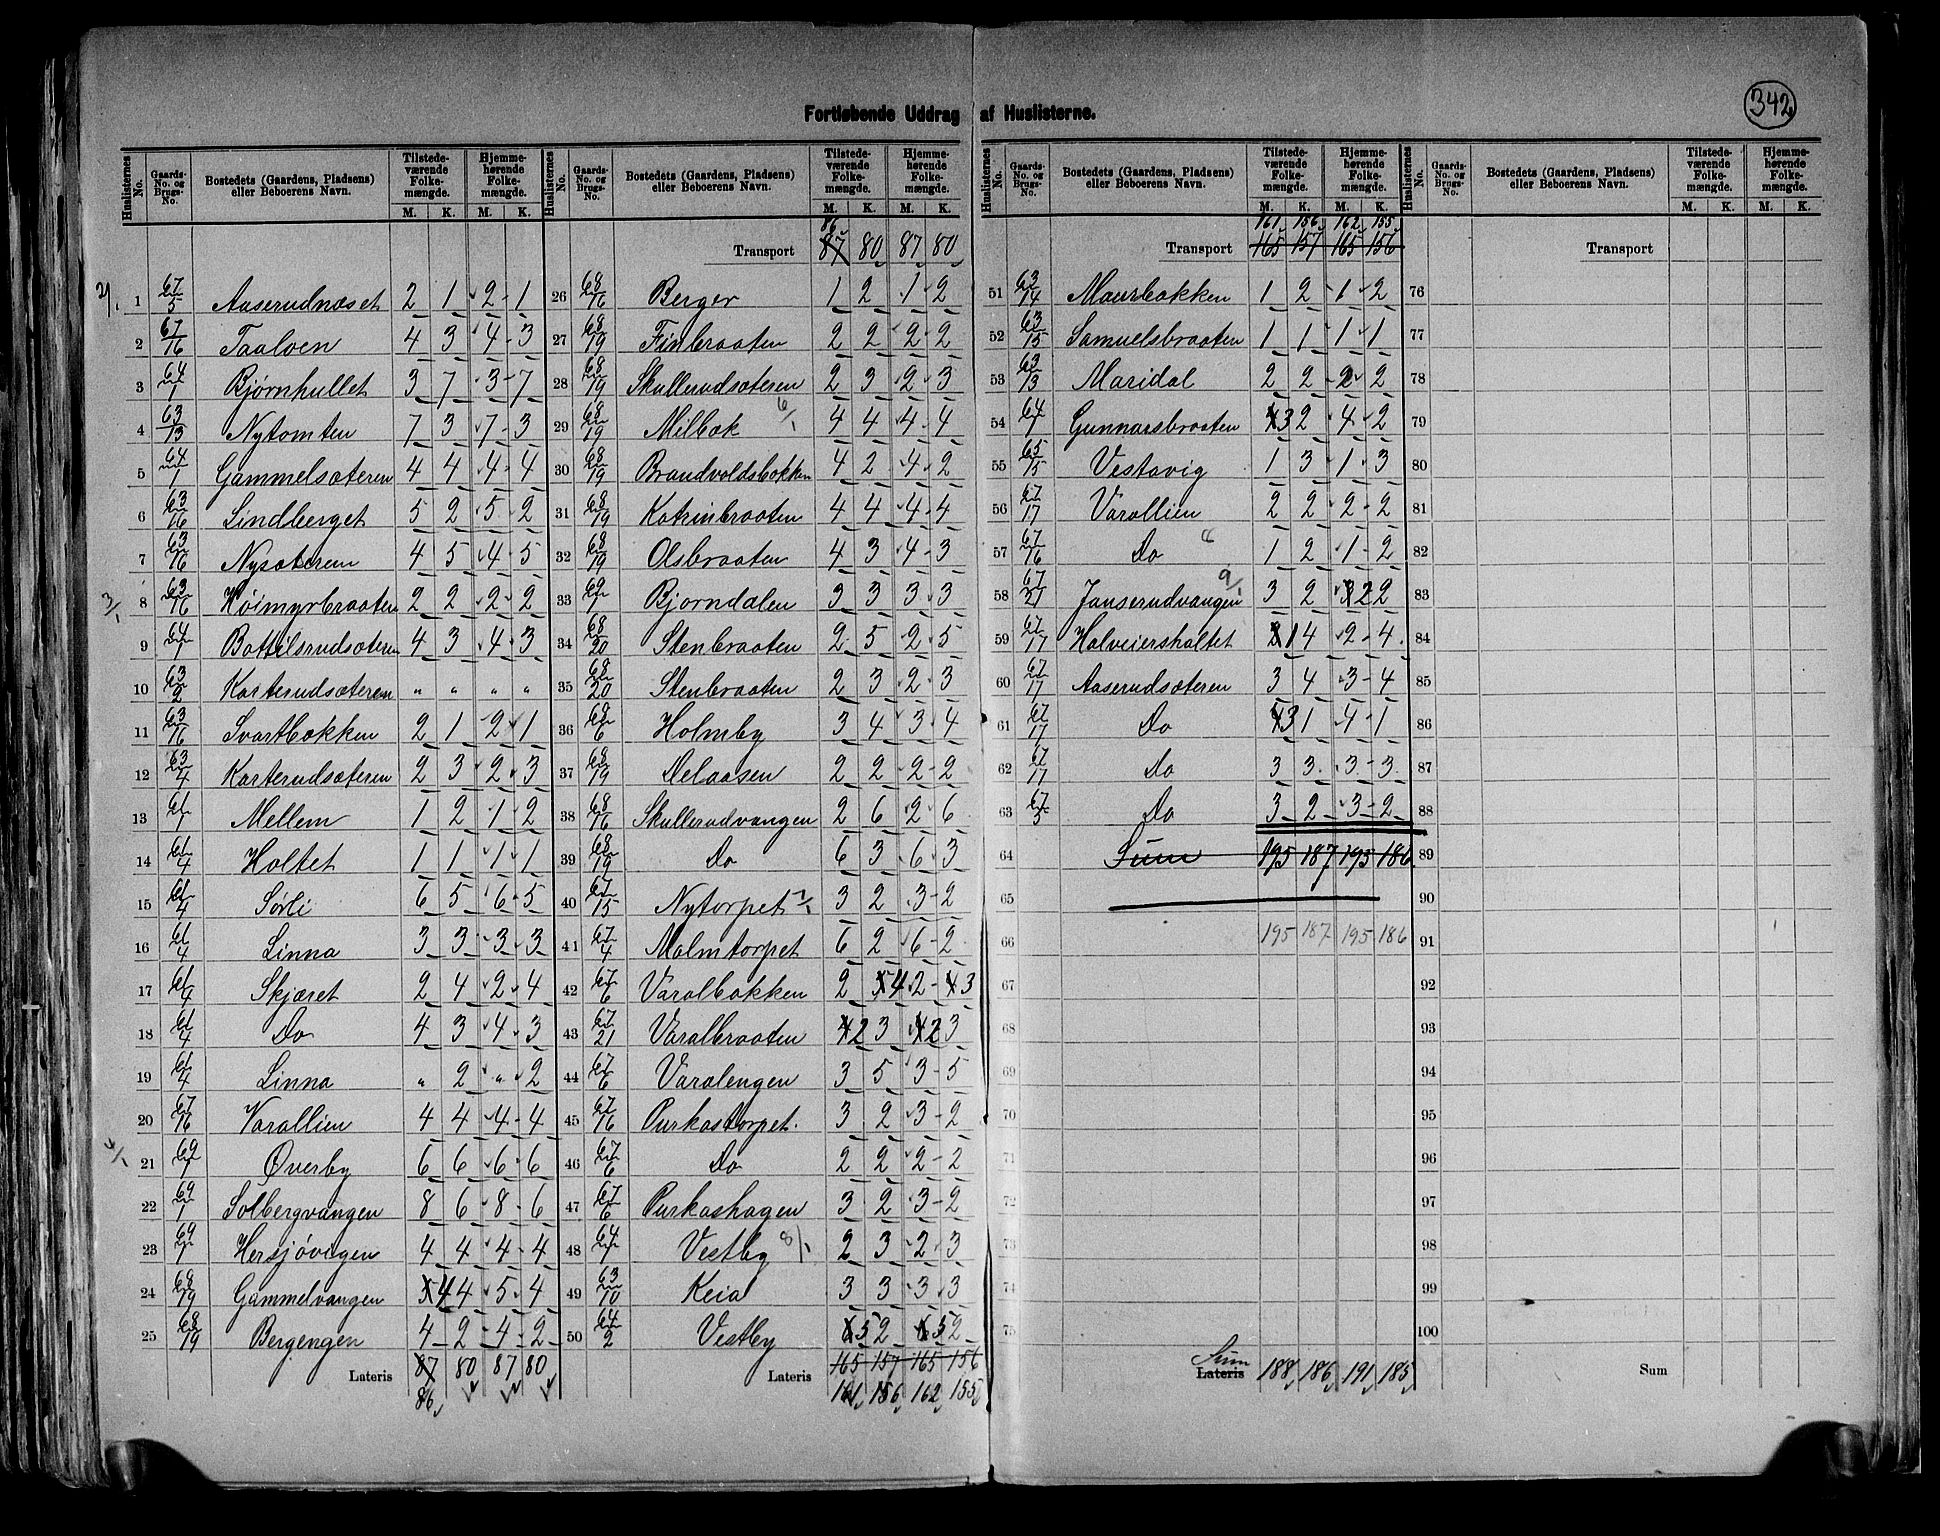 342
Fortløbende Uddrag af Huslisterne.
Huslisternes No. Gaards-No. og Brugs-No. Bostedets (Gaardens, Pladsens) eller Beboerens Navn. Tilstedeværende Folkemængde. M. K. Hjemmehørende Folkemængde. M. K.
1 67/5 Aaserudnæset 2 1 2 1
2 67/16 Taaloen 4 3 4 3
3 64/1 Bjørnhullet 3 7 3 7
4 63/13 Nytomten 7 3 7 3
5 64/1 Gammelsæteren 4 4 4 4
6 63/16 Lindberget 5 2 5 2
7 63/16 Nysæteren 4 5 4 5
3/1
8 63/16 Køimyrbraaten 2 2 2 2
9 64/1 Bottilsrudsæteren 4 3 4 3
10 63/2 Karterudsæteren " " " "
11 63/16 Svartbækken 2 1 2 1
12 63/4 Karterudsæteren 2 3 2 3
13 61/1 Mellem 1 2 1 2
14 61/4 Holtet 1 1 1 1
15 61/4 Sørli 6 5 6 5
16 61/4 Linna 3 3 3 3
17 61/4 Skjæret 2 4 2 4
18 61/4 Do 4 3 4 3
19 61/4 Linna " 2 " 2
20 67/16 Varallien 4 4 4 4
4/1
21 69/1 Øverby 6 6 6 6
22 69/1 Solbergvangen 8 6 8 6
23 69/1 Hersjøvigen 4 4 4 4
24 68/19 Gammelvangen 5 4 4 5 4
25 68/19 Bergengen 4 2 4 2
Lateris 87 80 87 80
86
Huslisternes No. Gaards-No. og Brugs-No. Bostedets (Gaardens, Pladsens) eller Beboerens Navn. Tilstedeværende Folkemængde. M. K. Hjemmehørende Folkemængde. M. K.
86
Transport 87 80 87 80
26 68/16 Berger 1 2 1 2
27 68/19 Finbraaten 2 2 2 2
28 68/19 Skullerudsæteren 2 3 2 3
29 68/19 Milbæk 6/1 4 4 4 4
30 68/19 Brandvoldsbækken 4 2 4 2
31 68/19 Katrinbraaten 4 4 4 4
32 68/19 Olsbraaten 4 3 4 3
33 69/1 Bjørndalen 3 3 3 3
34 68/20 Stenbraaten 2 5 2 5
35 68/20 Stenbraaten 2 3 2 3
36 68/6 Holmby 3 4 3 4
37 68/19 Delaasen 2 2 2 2
38 68/16 Skullerudvangen 2 6 2 6
39 68/19 Do 6 3 6 3
40 67/15 Nytorpet 7/1 3 2 3 2
41 67/4 Malmtorpet 6 2 6 2
42 67/6 Varalbækken 2 5 4 2 4 3
43 67/21 Varalbraaten 4 2 3 4 2 3
44 67/6 Varalengen 3 5 3 5
45 67/16 Purkastorpet. 3 2 3 2
46 67/6 Do 2 2 2 2
47 67/6 Purkashagen 3 2 3 2
48 64/1 Vestby 8/1 2 3 2 3
49 63/10 Keia 3 3 3 3
50 64/2 Vestby 6 5 2 6 5 2
Lateris 165 157 165 156
161 156 162 155
Huslisternes No. Gaards-No. og Brugs-No. Bostedets (Gaardens, Pladsens) eller Beboerens Navn. Tilstedeværende Folkemængde. M. K. Hjemmehørende Folkemængde. M. K.
161 156 162 155
Transport 165 157 165 156
51 63/14 Maurbækken 1 2 1 2
52 63/15 Samuelsbraaten 1 1 1 1
53 63/13 Maridal 2 2 2 2
54 64/1 Gunnarsbraaten 4 3 2 4 2
55 65/15 Vestavig 1 3 1 3
56 67/17 Varallien 2 2 2 2
57 67/16 Do 1 2 1 2
9/1
58 67/21 Janserudvangen 3 2 3 2 2
59 67/17 Halveiersholtet 2 1 4 2 4
60 67/17 Aaserudsæteren 3 4 3 4
61 67/17 Do 4 3 1 4 1
62 67/17 Do 3 3 3 3
63 67/5 Do 3 2 3 2
64 Sum 195 187 195 186
65
66 195 187 195 186
67
68
69
70
71
72
73
74
75
Sum
Lateris 188 186 191 185
Huslisternes No. Gaards-No. og Brugs-No. Bostedets (Gaardens, Pladsens) eller Beboerens Navn. Tilstedeværende Folkemængde. M. K. Hjemmehørende Folkemængde. M. K.
Transport
76
77
78
79
80
81
82
83
84
85
86
87
88
89
90
91
92
93
94
95
96
97
98
99
100
Sum